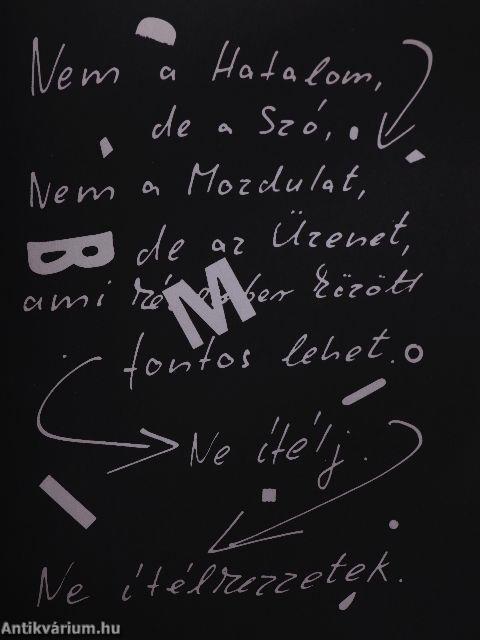 Nem a Hatalom,
de a Szó,
Nem a Mozdulat,
B
de az Üzenet,
ami két ember között
M
fontos lehet.
Ne ítélj.
Ne ítélkezzetek.
Antikvárium.hu